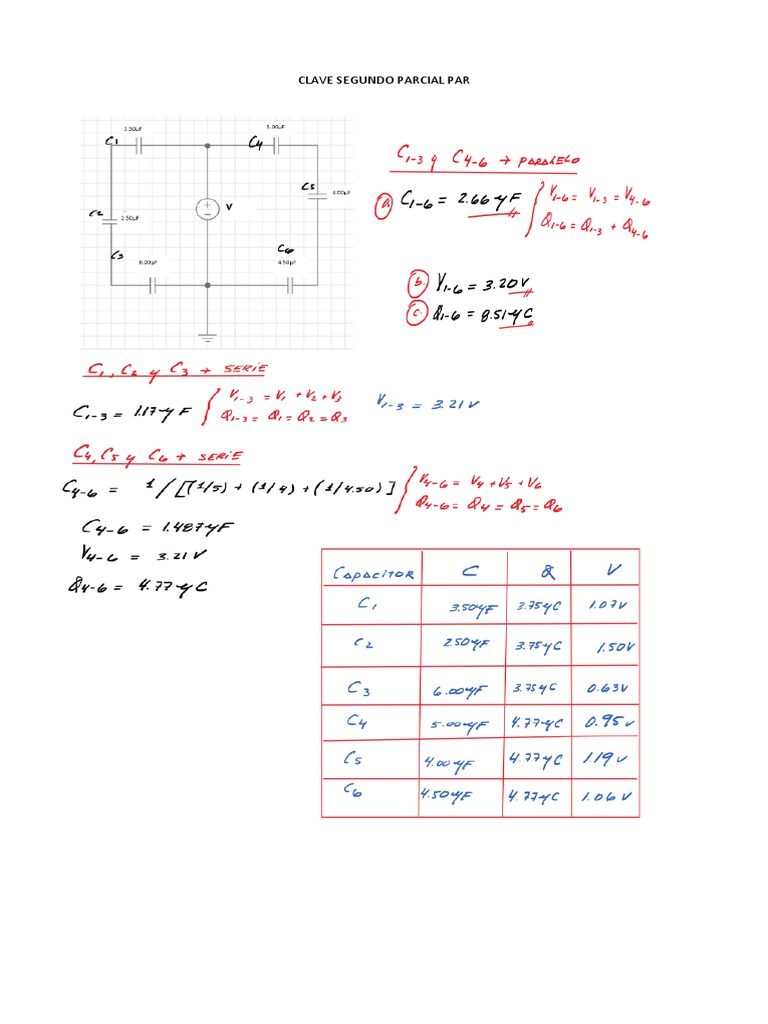 CLAVE SEGUNDO PARCIAL PAR
C1
C4
5.00μF
C5
4.00μF
V
C2
2.50μF
C3
6.00μF
C6
4.50μF
C1-3 y C4-6 → PARALELO
a. C1-6 = 2.66 μF { V1-6 = V1-3 = V4-6
Q1-6 = Q1-3 + Q4-6
b. V1-6 = 3.20V
c. Q1-6 = 8.51 μC
C1, C2 y C3 → SERIE
C1-3 = 1.17 μF { V1-3 = V1 + V2 + V3
Q1-3 = Q1 = Q2 = Q3
V1-3 = 3.21V
C4, C5 y C6 → SERIE
C4-6 = 1/[(1/5) + (1/4) + (1/4.50)] { V4-6 = V4 + V5 + V6
Q4-6 = Q4 = Q5 = Q6
C4-6 = 1.487 μF
V4-6 = 3.21 V
Q4-6 = 4.77 μC
CAPACITOR C Q V
C1 3.50μF 3.75μC 1.07V
C2 2.50μF 3.75μC 1.50V
C3 6.00μF 3.75μC 0.63V
C4 5.00μF 4.77μC 0.95V
C5 4.00μF 4.77μC 1.19V
C6 4.50μF 4.77μC 1.06V